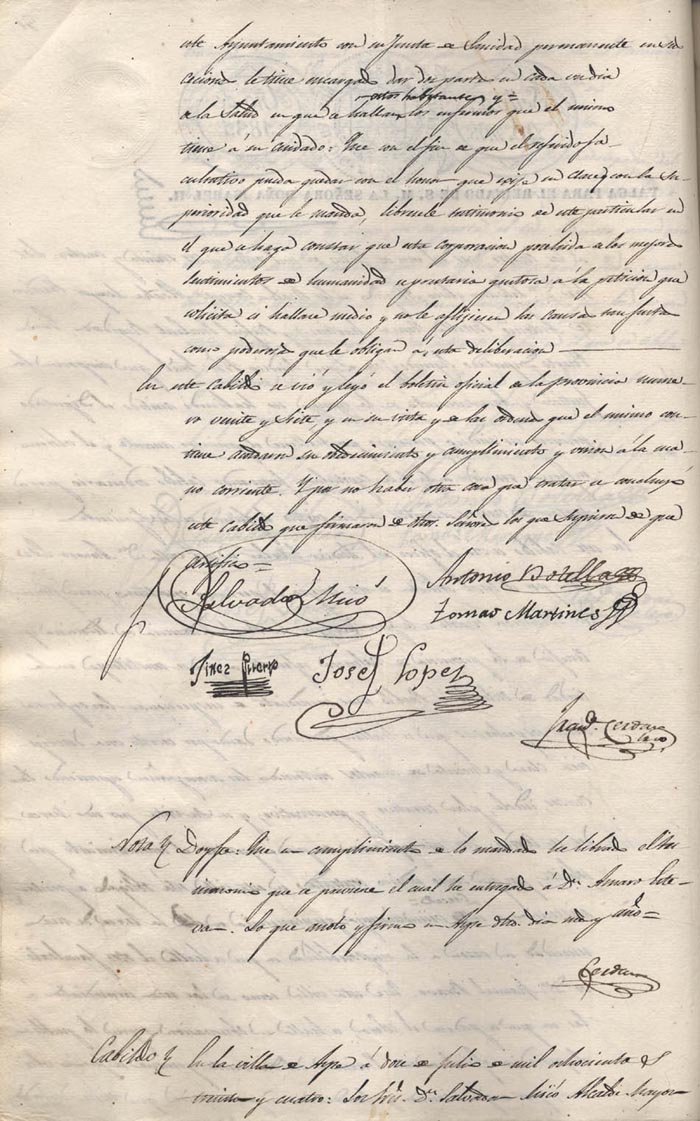 este Ayuntamiento con su Junta de Sanidad permanente en
le tiene encargado dar dos partes en cada un dia
estos habitantes y =
a la Salud en que se hallan los enfermos que el mismo
tiene á su cuidado: Que con el fin de que el referido fa-
cultativo pueda quedar con el honor que exije su clase, con la Su-
perioridad que lo manda, libresele testimonio de este particular en
el que se haga constar que esta corporacion a los mejores
sentimientos de humanidad se prestaria gustosa á la peticion que
solicita si hallase medio y no le aflijiesen las causas tan justas
como poderosas que le obligan á esta deliberacion
En este Cabildo se vió y leyó el boletin oficial de la provincia nume-
ro veinte y siete, y en su vista y de las ordenes que el mismo con-
tiene acordaron su obedecimiento y cumplimiento y union á la ma-
no corriente. Y por no haber otra cosa que tratar se concluyó
este Cabildo que firmaron de dhos. Señores los que supieron de que
certifico =
Salvador Micó
Antonio Botella
Tomas Martines
Jinez Puerto
Jose Lopez
Franco. Cerdan
Nota Doy fe: Que en cumplimiento de lo mandado he librado el tes-
timonio que se previene el cual he entregado á Dn. Amaro Este-
va. Lo que anoto y firmo en Aspe dho. dia mes y año =
Cerdan
Cabildo En la villa de Aspe á doce de Julio de mil ochocientos
treinta y cuatro: Los Sres. Dn. Salvador Micó Alcalde Mayor
VALGA PARA EL REINADO DE S. M. LA SEÑORA DOÑA ISABEL II.